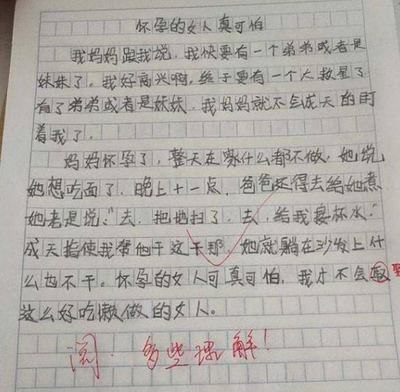 怀孕的女人真可怕
我妈妈跟我说，我快要有一个弟弟或者是
妹妹了。我好高兴啊，终于要有一个大救星了
有了弟弟或者是妹妹，我妈妈就不会成天的盯
着我了。
妈妈怀孕了，整天在家什么都不做，她说
她想吃面了，晚上十一点，爸爸还得去给她煮
她老是说："去，把地扫了，去，给我接杯水."
成天指使我帮他干这干那，她就躺在沙发上什
么也不干。怀孕的女人可真可怕，我才不会取
这么好吃懒做的女人。
阅. 多些理解!